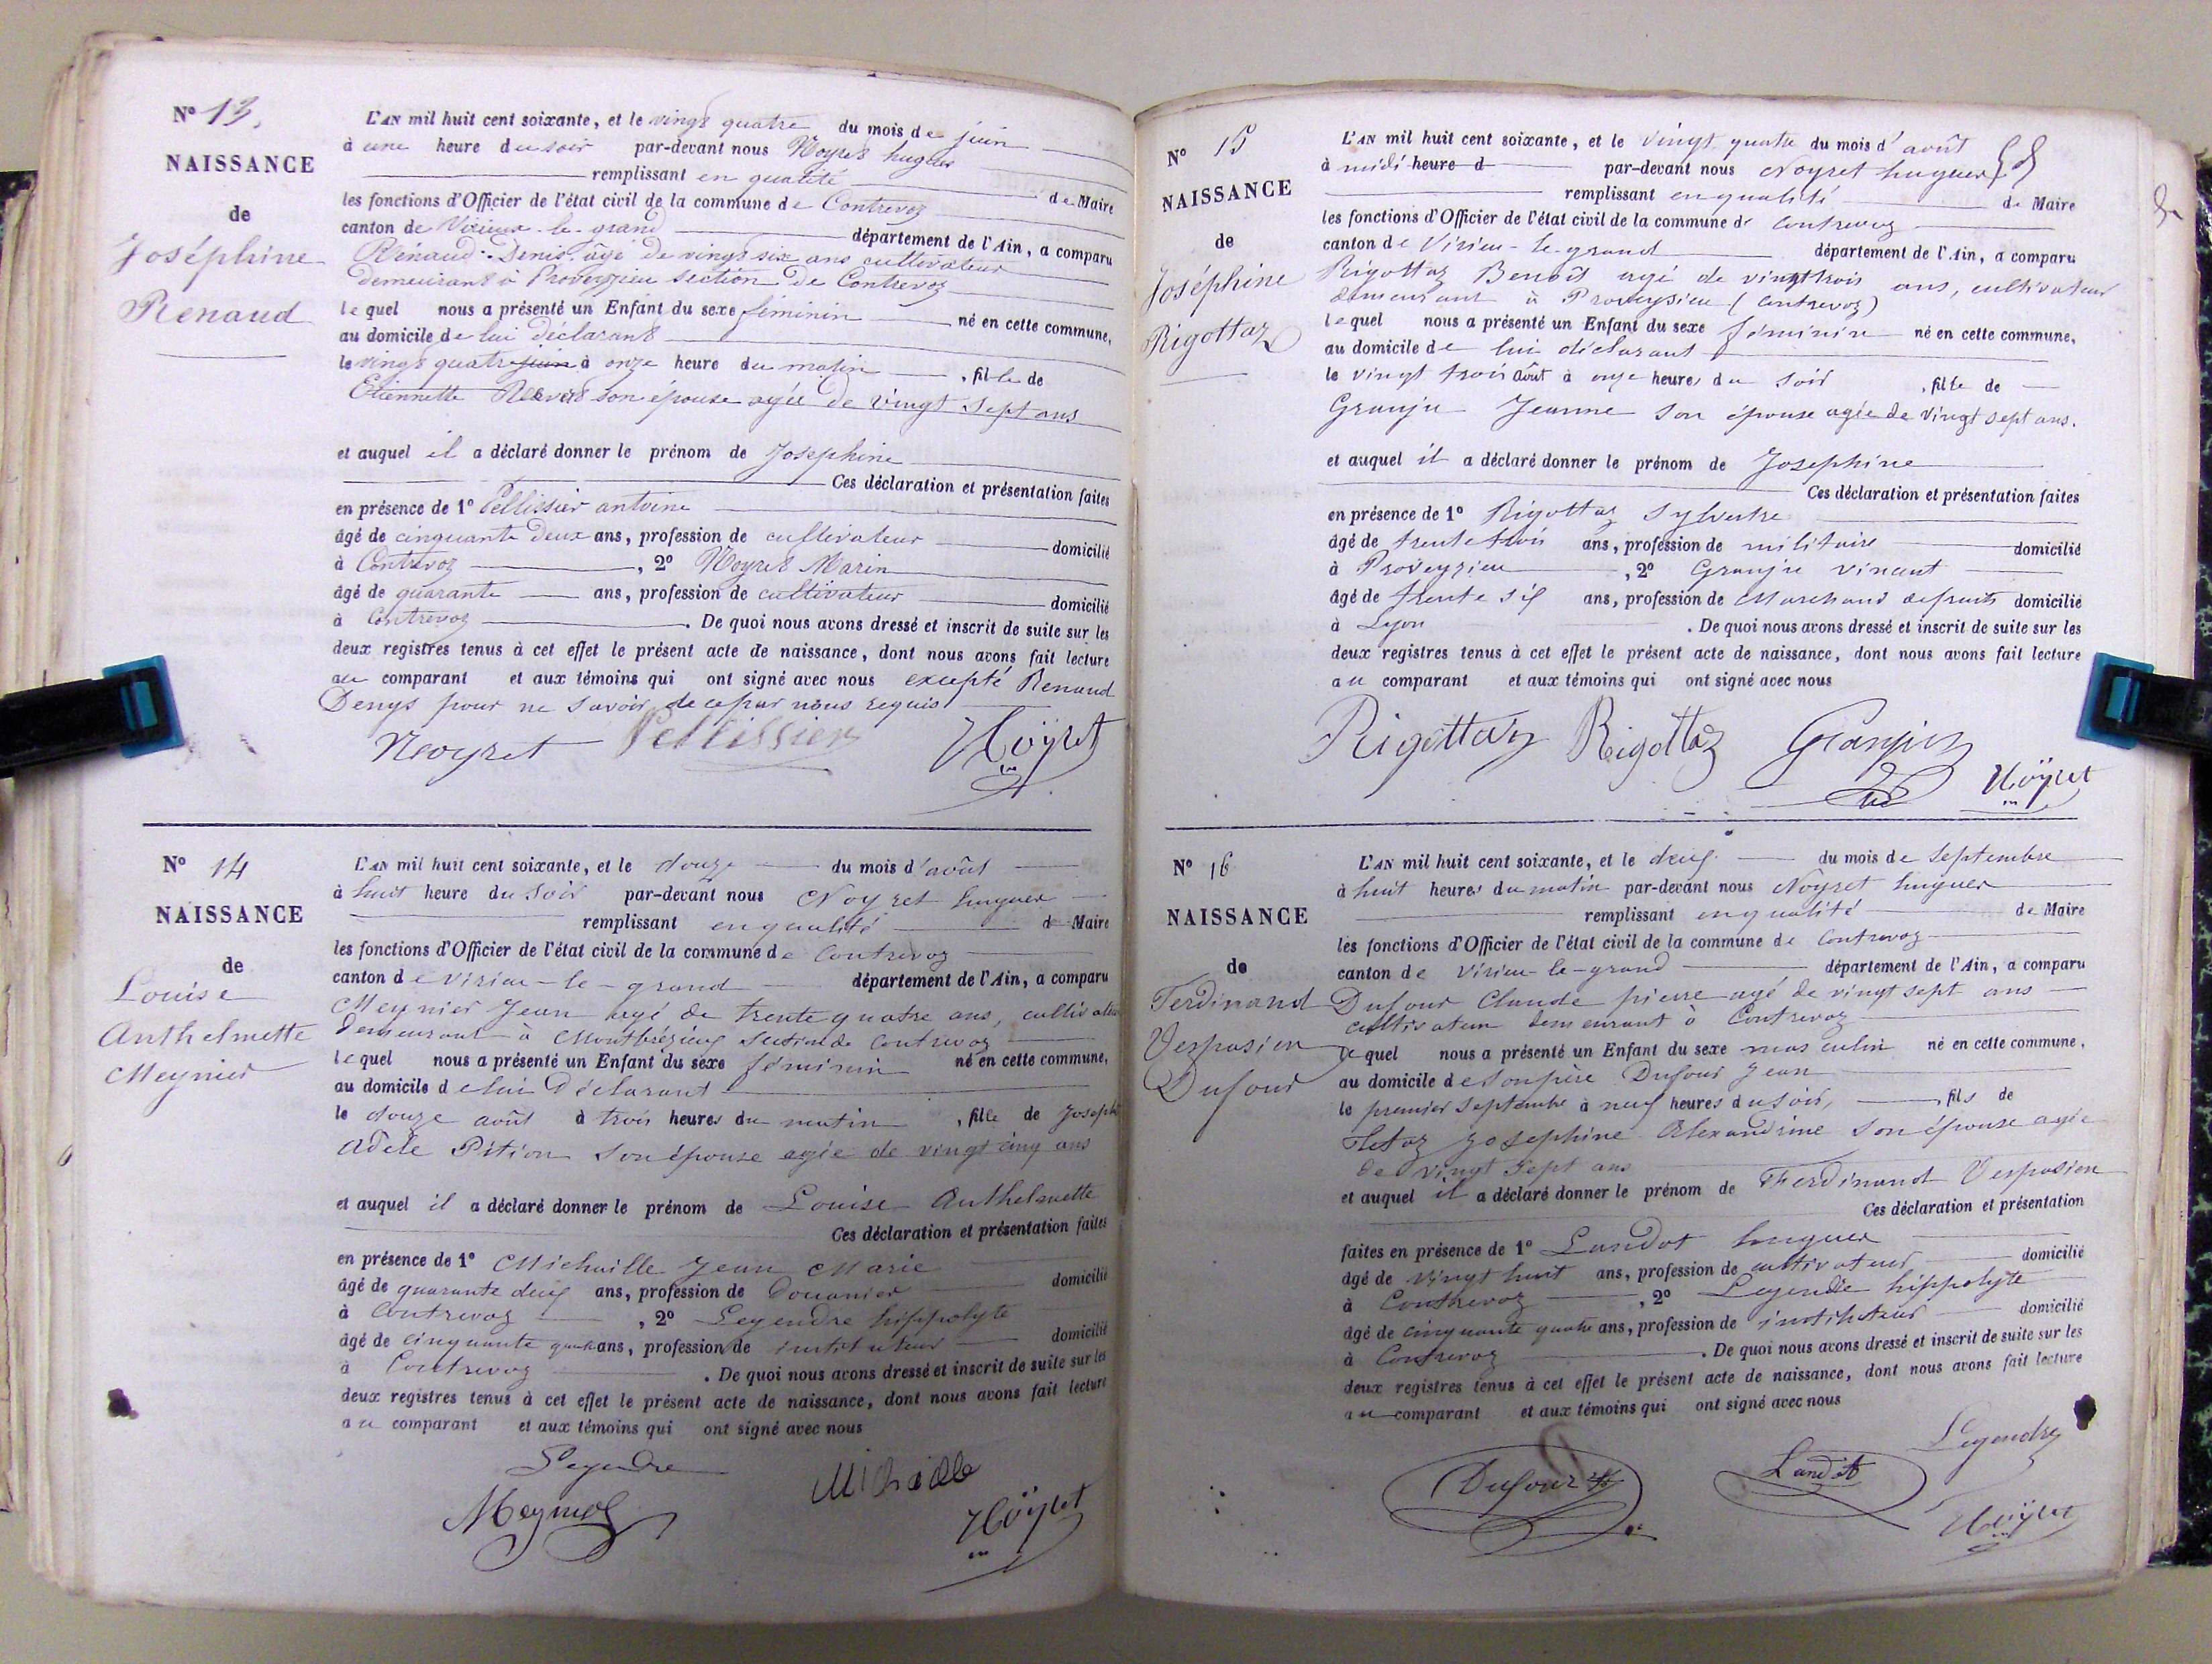 Nº 13.
NAISSANCE
de
Joséphine
Renaud
L'AN mil huit cent soixante, et le vingt quatre du mois de juin
à une heure du soir par-devant nous Noyret hugues
remplissant en qualité de Maire
les fonctions d'Officier de l'état civil de la commune de Contrevoz
canton de Virieux-le-grand département de l'Ain, a comparu
Renaud Denis âgé de vingt six ans cultivateur
demeurant à Proveyzieu section de Contrevoz
lequel nous a présenté un Enfant du sexe féminin né en cette commune,
au domicile de lui déclarant
le vingt quatre juin à onze heure du matin , fille de
Etiennette son épouse agée de vingt sept ans
et auquel il a déclaré donner le prénom de Joséphine
Ces déclaration et présentation faites
en présence de 1º Pellissier antoine
âgé de cinquante deux ans, profession de cultivateur domicilié
à Contrevoz , 2º Noyret Marin
âgé de quarante ans, profession de cultivateur domicilié
à Contrevoz . De quoi nous avons dressé et inscrit de suite sur les
deux registres tenus à cet effet le présent acte de naissance, dont nous avons fait lecture
au comparant et aux témoins qui ont signé avec nous excepté Renaud
Denys pour ne savoir de ce par nous requis
Noyret Pellissier Noÿret
Nº 14
NAISSANCE
de
Louise
Anthelmette
Meynier
L'AN mil huit cent soixante, et le douze du mois d'août
à huit heure du soir par-devant nous Noyret hugues
remplissant en qualité de Maire
les fonctions d'Officier de l'état civil de la commune de Contrevoz
canton de virieu-le-grand département de l'Ain, a comparu
Meynier Jean agé de trente quatre ans, cultivateur
demeurant à Montbrézieux section de Contrevoz
lequel nous a présenté un Enfant du sexe féminin né en cette commune,
au domicile de lui déclarant
le douze août à trois heures du matin , fille de Joseph
Adèle Pition son épouse agée de vingt cinq ans
et auquel il a déclaré donner le prénom de Louise Anthelmette
Ces déclaration et présentation faites
en présence de 1º Michaille Jean Marie
âgé de quarante deux ans, profession de Douanier domicilié
à Contrevoz , 2º Legendre hippolyte
âgé de cinquante quatre ans, profession de instituteur domicilié
à Contrevoz . De quoi nous avons dressé et inscrit de suite sur les
deux registres tenus à cet effet le présent acte de naissance, dont nous avons fait lecture
au comparant et aux témoins qui ont signé avec nous
Legendre
Michaille
Meynier
Noÿret
Nº 15
NAISSANCE
de
Joséphine
Rigottaz
L'AN mil huit cent soixante, et le vingt quatre du mois d'août
à midi heure d par-devant nous Noyret hugues
remplissant en qualité de Maire
les fonctions d'Officier de l'état civil de la commune de Contrevoz
canton de Virieu-le-grand département de l'Ain, a comparu
Rigottaz Benoît agé de vingt trois ans, cultivateur
demeurant à Proveysieu (Contrevoz)
lequel nous a présenté un Enfant du sexe féminin né en cette commune,
au domicile de lui déclarant
le vingt trois août à onze heures du soir , fille de
Granju Jeanne son épouse agée de vingt sept ans.
et auquel il a déclaré donner le prénom de Josephine
Ces déclaration et présentation faites
en présence de 1º Rigottaz Sylvestre
âgé de trente trois ans, profession de militaire domicilié
à Proveyzieu , 2º Granju vincent
âgé de trente six ans, profession de Marchand de fruits domicilié
à Lyon . De quoi nous avons dressé et inscrit de suite sur les
deux registres tenus à cet effet le présent acte de naissance, dont nous avons fait lecture
au comparant et aux témoins qui ont signé avec nous
Rigottaz Rigottaz Granjux
Noÿret
Nº 16
NAISSANCE
de
Ferdinand
Vespasien
Dufour
L'AN mil huit cent soixante, et le deux du mois de Septembre
à huit heures du matin par-devant nous Noyret hugues
remplissant en qualité de Maire
les fonctions d'Officier de l'état civil de la commune de Contrevoz
canton de Virieu-le-grand département de l'Ain, a comparu
Dufour Claude pierre agé de vingt sept ans
cultivateur demeurant à Contrevoz
lequel nous a présenté un Enfant du sexe masculin né en cette commune,
au domicile de son père Dufour Jean
le premier Septembre à neuf heures du soir, fils de
Josephine Alexandrine son épouse agée
de vingt sept ans
et auquel il a déclaré donner le prénom de Ferdinand Vespasien
Ces déclaration et présentation
faites en présence de 1º Landot hugues
âgé de vingt huit ans, profession de cultivateur domicilié
à Contrevoz , 2º Legendre hippolyte
âgé de cinquante quatre ans, profession de instituteur domicilié
à Contrevoz . De quoi nous avons dressé et inscrit de suite sur les
deux registres tenus à cet effet le présent acte de naissance, dont nous avons fait lecture
au comparant et aux témoins qui ont signé avec nous
Legendre
Dufour Landot
Noÿret